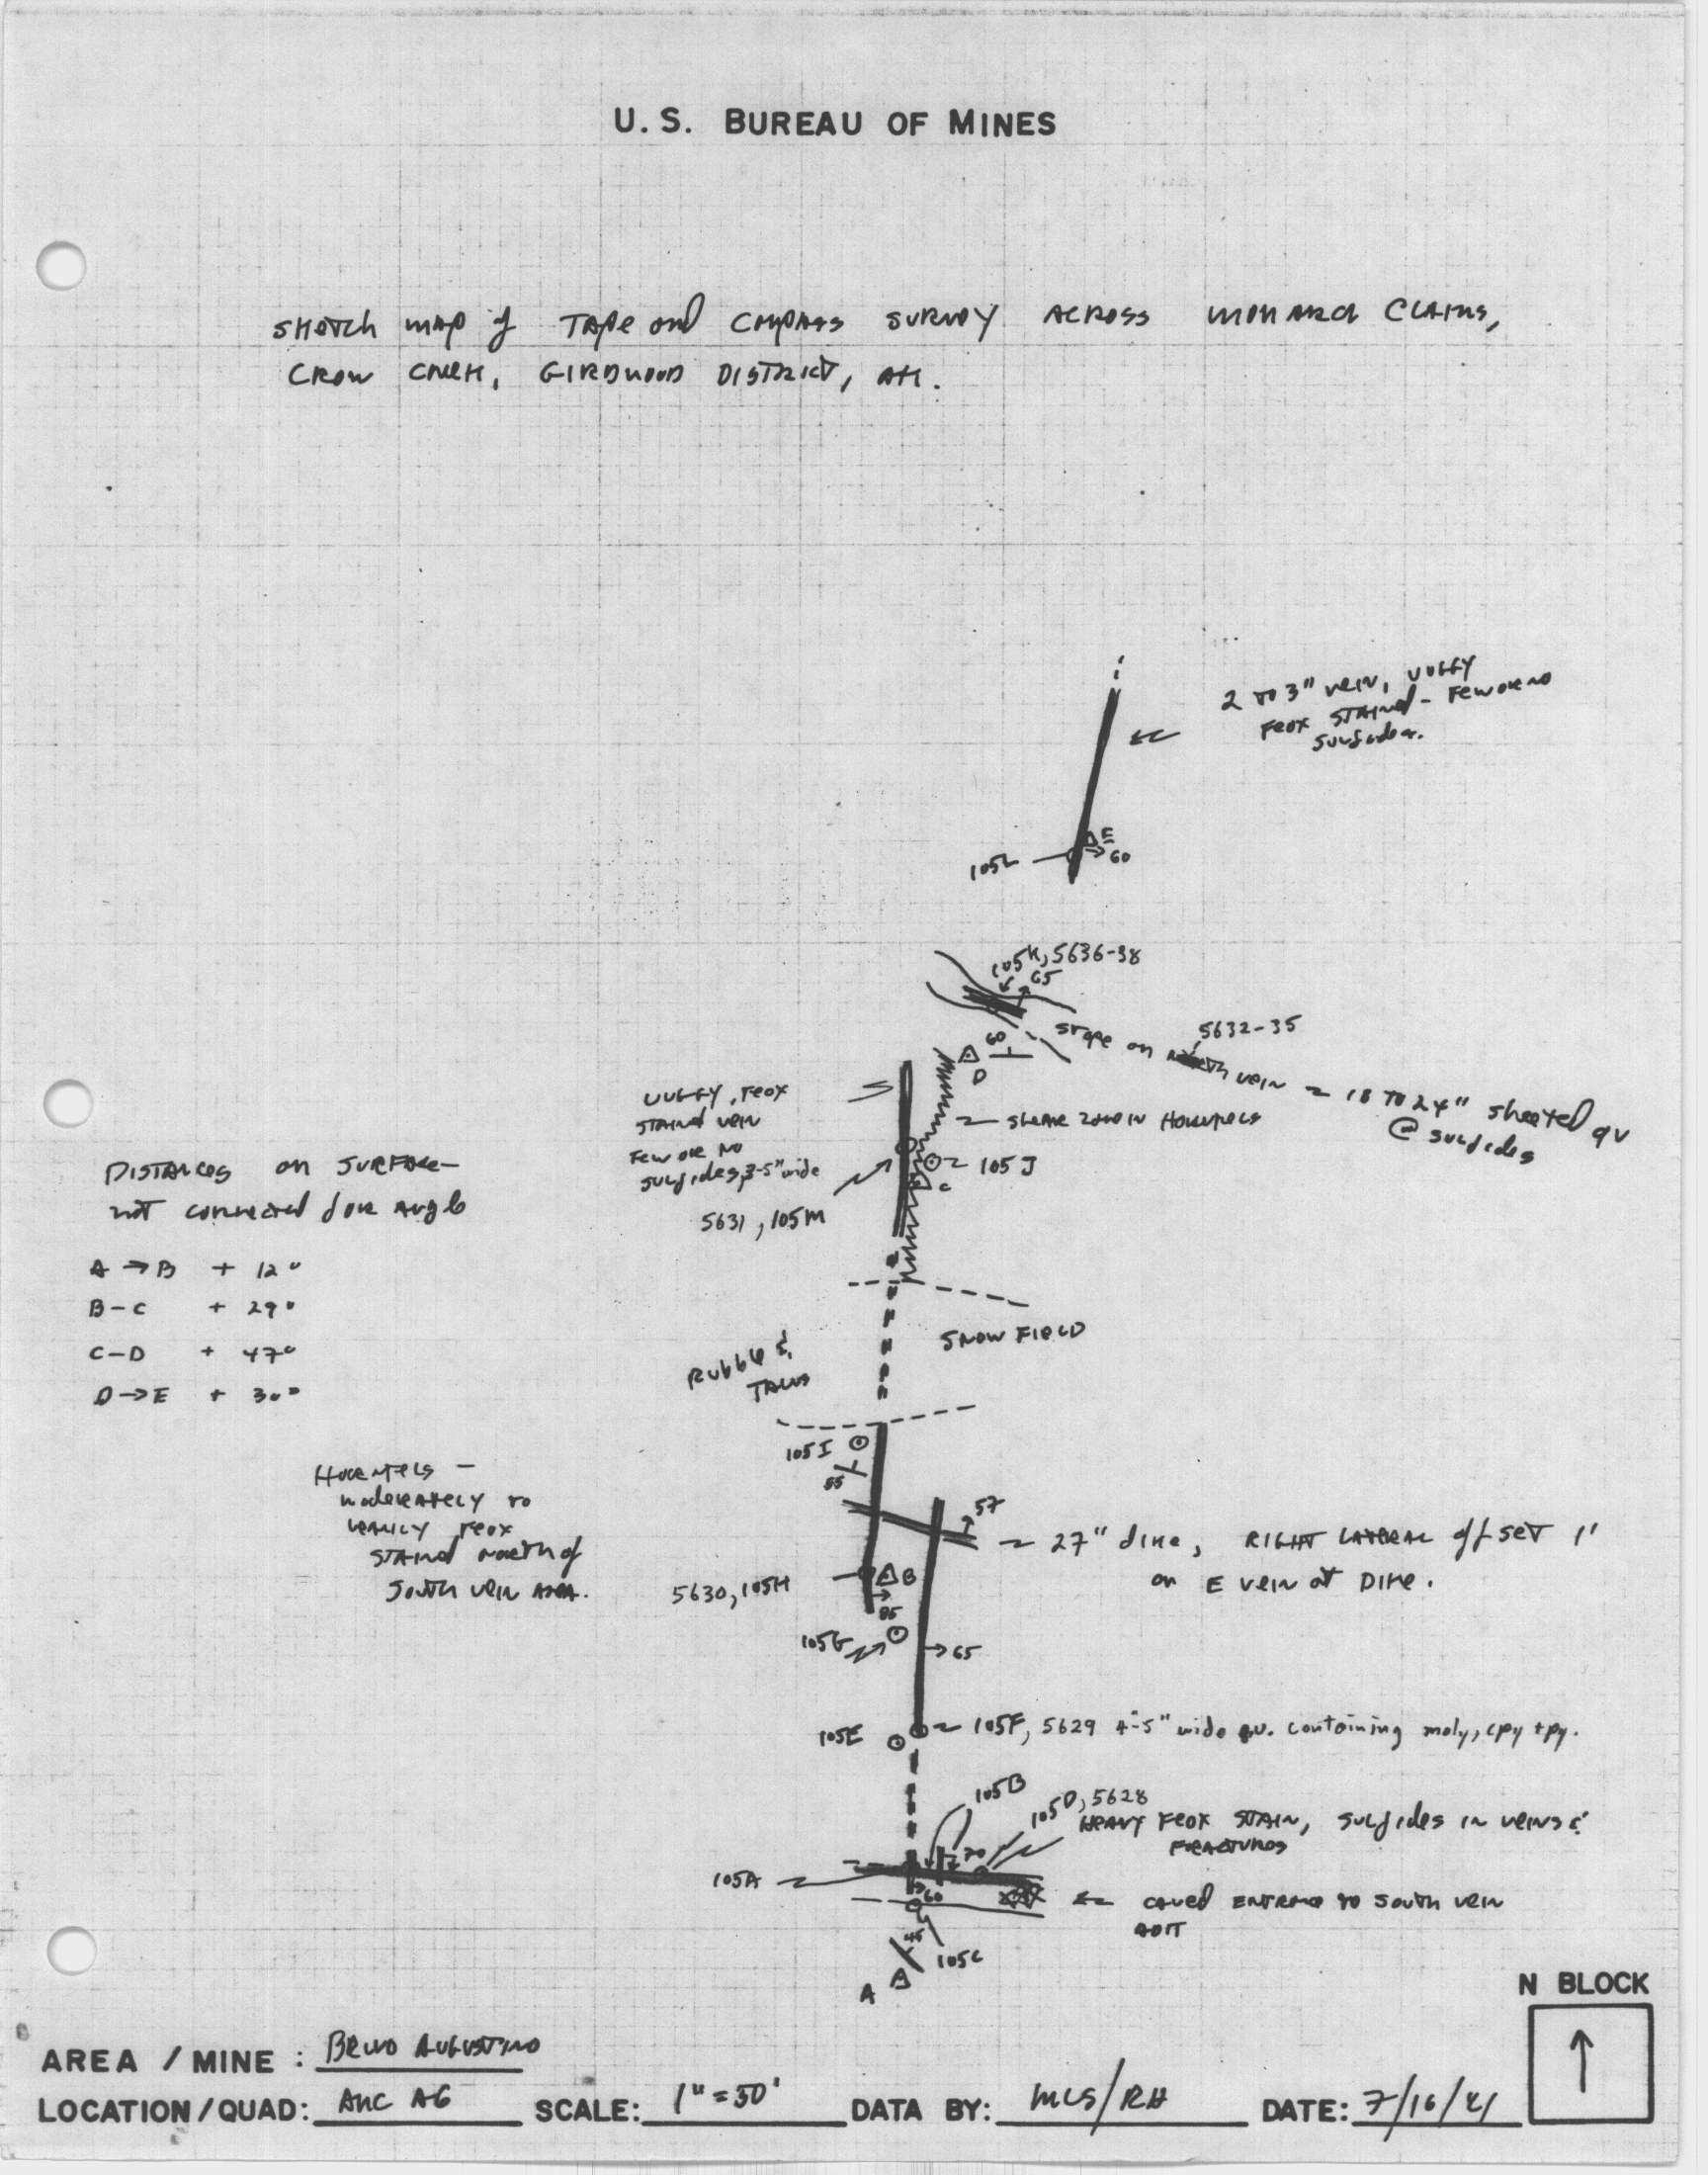 U.S. BUREAU OF MINES
SKETCH MAP of TAPE and COMPASS SURVEY ACROSS MONARCH CLAIMS,
CROW CREEK, GIRDWOOD DISTRICT, AK.
2 TO 3" vein, VUGGY
FeOX STAINED - FEW OR NO
SULfides.
E
60
105L
105K, 5636-38
65
5632-35
STOPE on vein ~ 18 TO 24" sheeted qv
@ SULfides
60
D
VUGGY, FeOX
STAINED vein
FEW OR NO
SULfides, 3-5" wide
SHEAR ZONE IN HORNFELS
105J
C
5631, 105M
DISTANCES on SURFACE -
not corrected for Angle
A → B + 12°
B - C + 29°
C - D + 47°
D → E + 30°
SNOW FIELD
Rubble &
TALUS
105I
55
HORNFELS -
moderately TO
HEAVILY FeOX
STAINED north of
South vein AREA.
57
27" dike, RIGHT LATERAL offset 1'
on E vein at DIKE.
5630, 105H
B
85
105G
65
105E
105F, 5629 4-5" wide qv. containing moly, cpy + py.
105B
105D, 5628
HEAVY FeOX STAIN, SULfides in veins &
FRACTURES
70
105A
60
CAVED ENTRANCE TO South vein
ADIT
45
105C
A
N BLOCK
↑
AREA / MINE : BRUNO AUGUSTINO
LOCATION/QUAD: ANC A6 SCALE: 1" = 50' DATA BY: MCS/RH DATE: 7/16/81